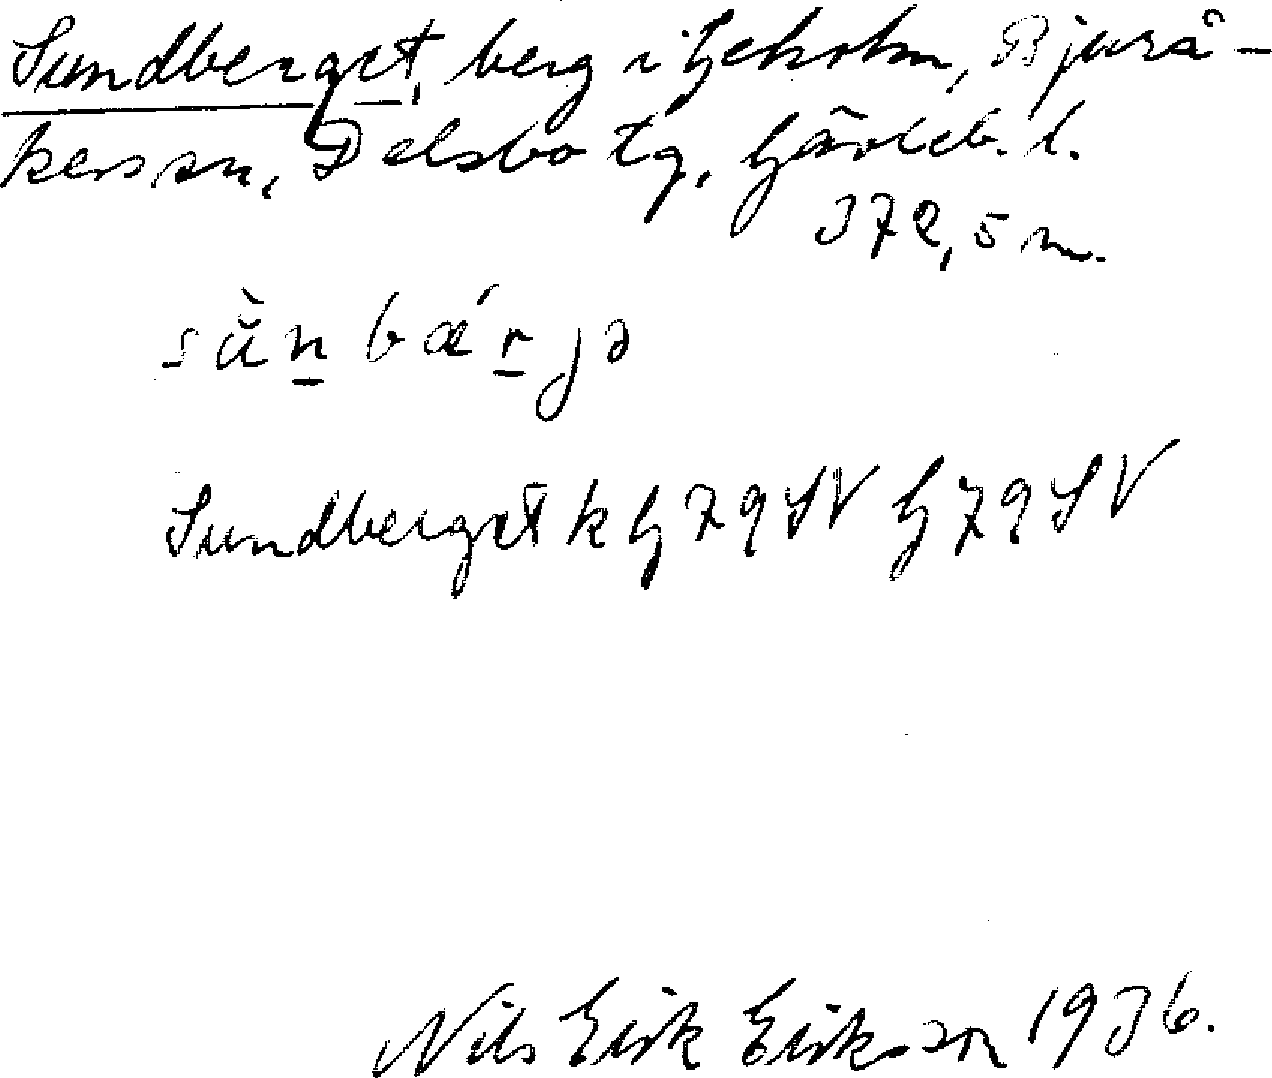 Sundberget, berg i Gekolm, Bjurå-
kers sn, Delsbo tg, Gävleb. l.
372,5 m.
sằn bǽr jə
Sundberget k G 79 SV G 79 SV
Nils Erik Eriksson 1936.